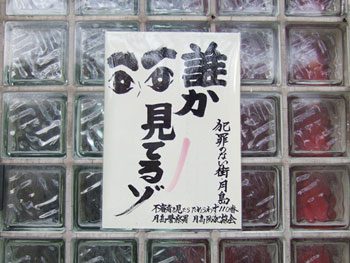 誰か
見てるゾ
犯罪のない街月島
不審者を見たらためらわず110番
月島警察署 月島防犯協会